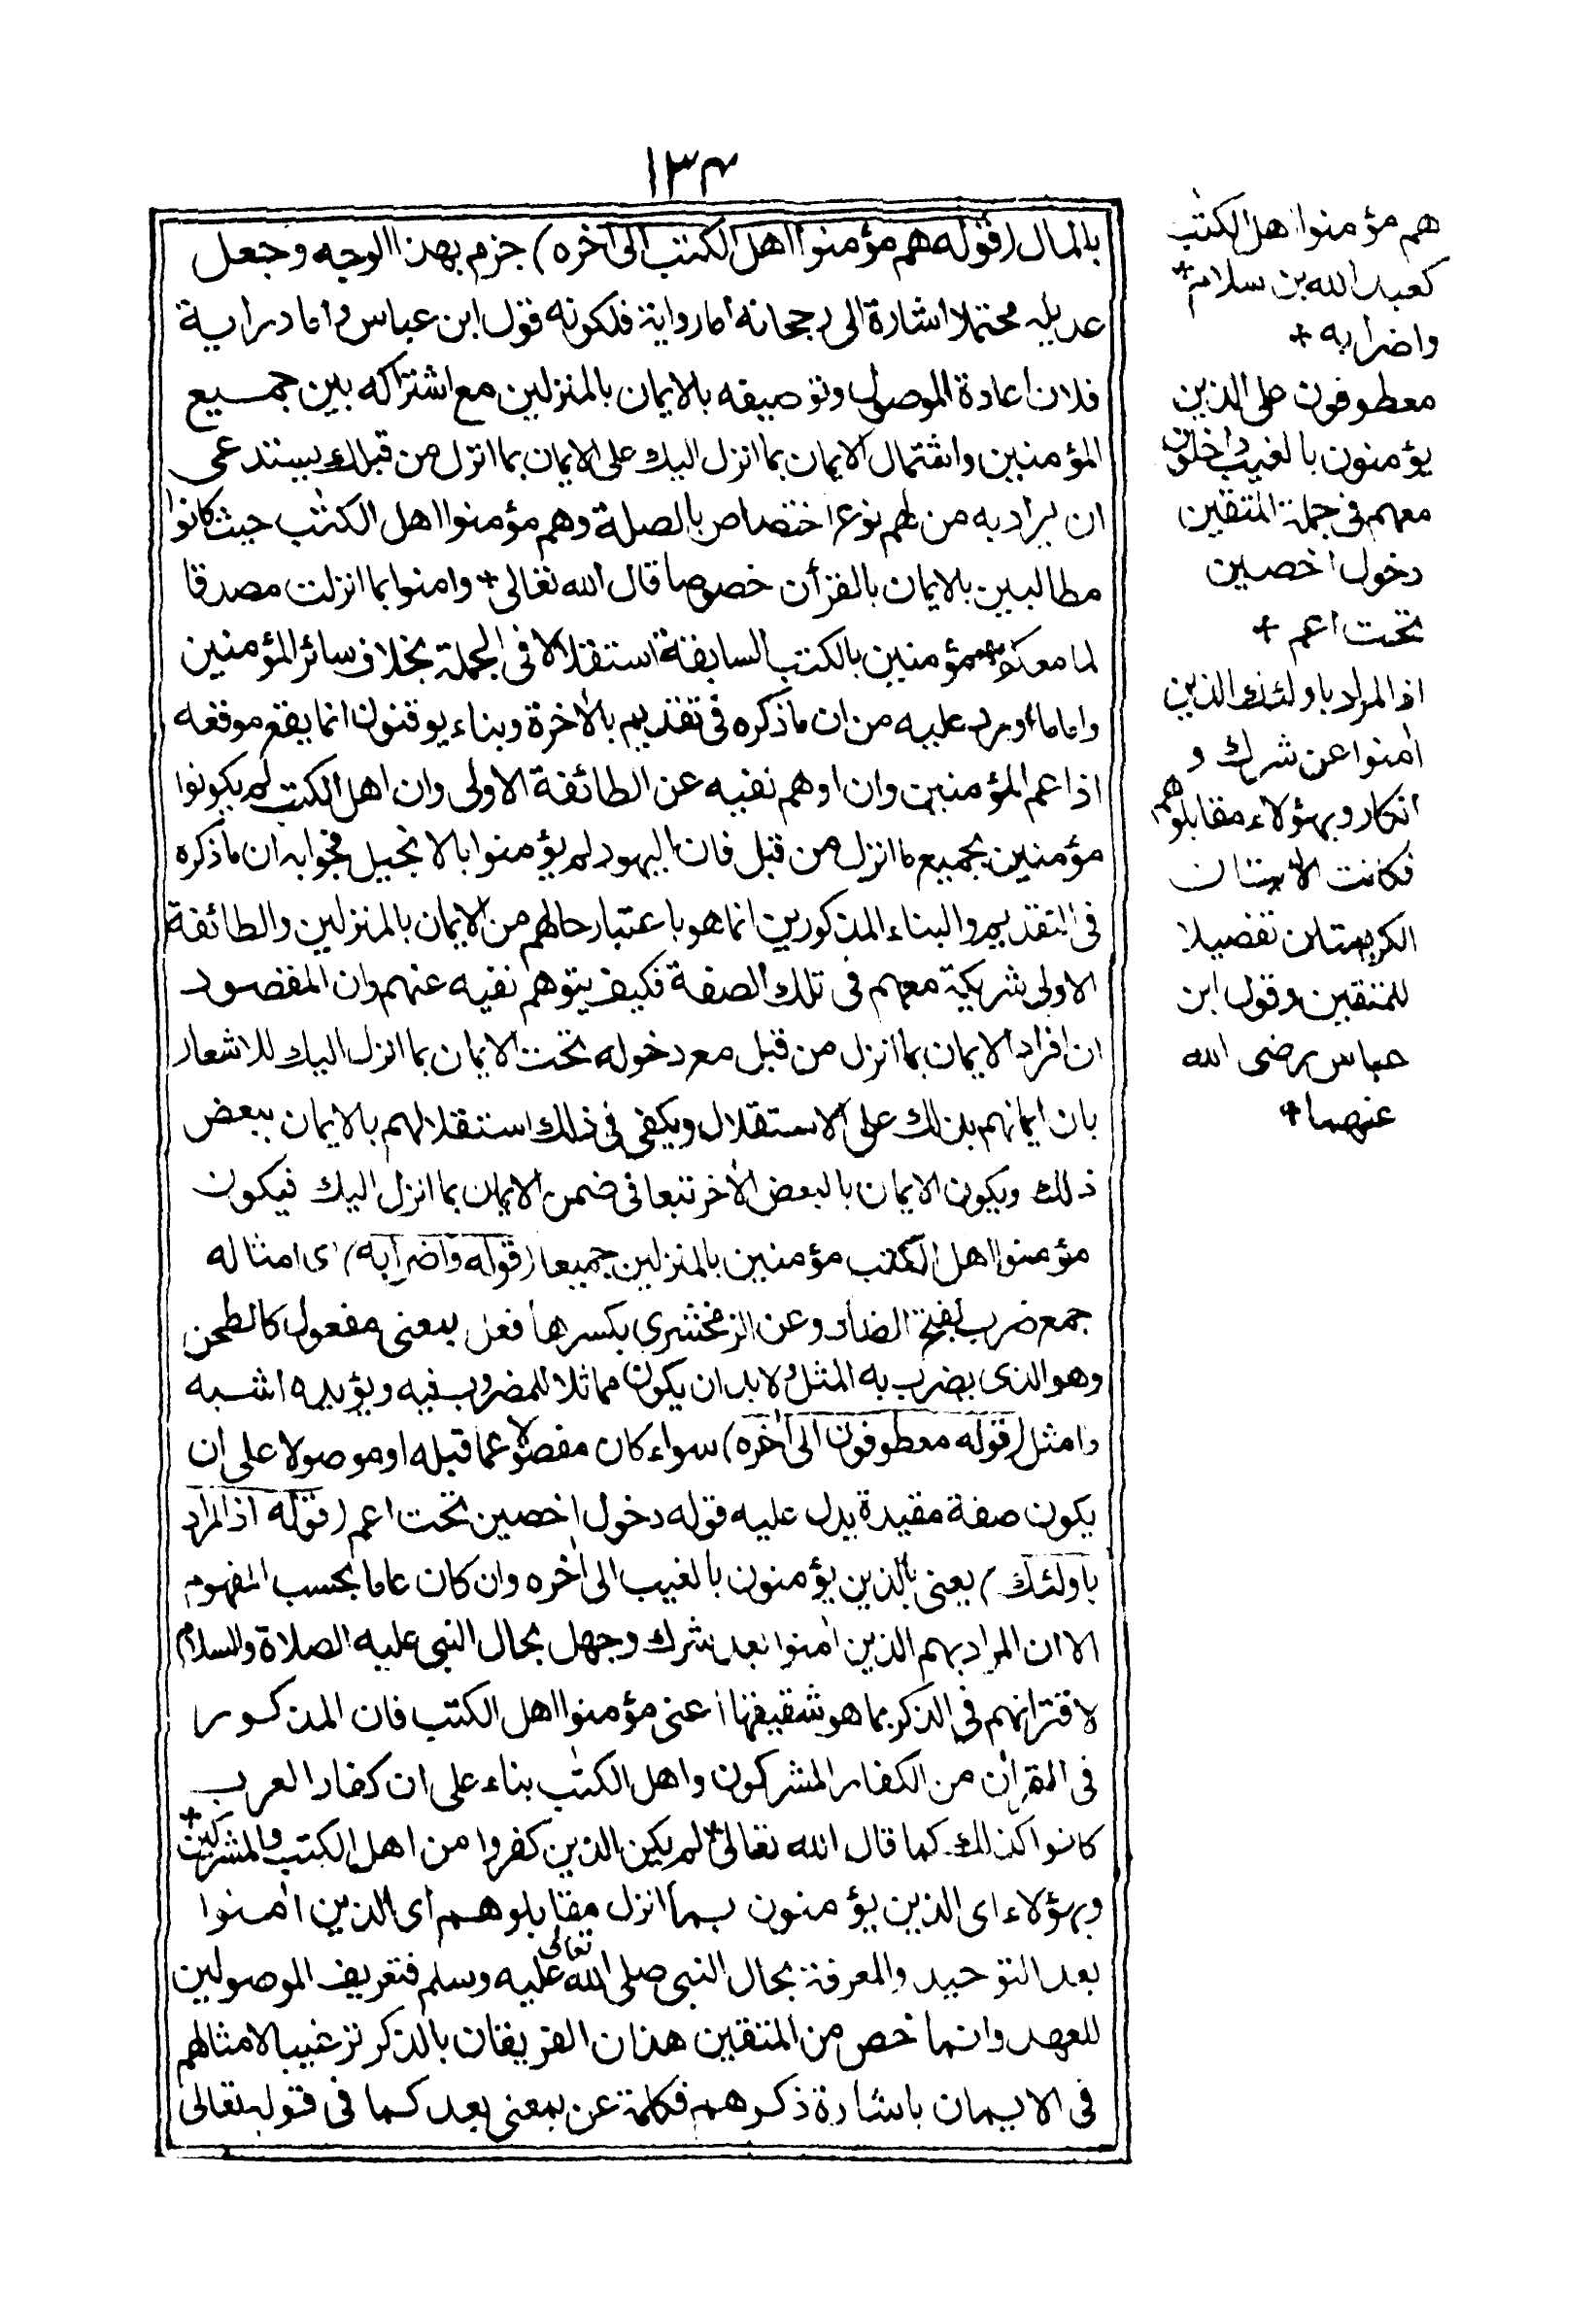 ١٣٤
بالمال (قوله هم مؤمنوا اهل الكتب الى اخره) جزم بهذا الوجه وجعل
عديله محتملا اشارة الى رجحانه اما رواية فلكونه قول ابن عباس واما دراية
فلان اعادة الموصول وتوصيفه بالايمان بالمنزلين مع اشتراكه بين جميع
المؤمنين واشتمال الايمان بما انزل اليك على الايمان بما انزل من قبلك يستدعى
ان يراد به من لهم نوع اختصاص بالصلة وهم مؤمنوا اهل الكتب حيث كانوا
مطالبين بالايمان بالقرأن خصوصا قال الله تعالى + وامنوا بما انزلت مصدقا
لما معكم + مؤمنين بالكتب السابقة استقلالا فى الجملة بخلاف سائر المؤمنين
واما ما اورد عليه من ان ما ذكره فى تقديم بالأخرة وبناء يوقنون انما يقع موقعه
اذا عم المؤمنين وان اوهم نفيه عن الطائفة الاولى وان اهل الكتب لم يكونوا
مؤمنين بجميع ما انزل من قبل فان اليهود لم يؤمنوا بالانجيل فجوابه ان ما ذكره
فى التقديم والبناء المذكورين انما هو باعتبار حالهم من الايمان بالمنزلين والطائفة
الاولى شريكة معهم فى تلك الصفة فكيف يتوهم نفيه عنهم وان المقصود
ان افراد الايمان بما انزل من قبل مع دخوله تحت الايمان بما انزل اليك للاشعار
بان ايمانهم بذلك على الاستقلال ويكفى فى ذلك استقلالهم بالايمان ببعض
ذلك ويكون الايمان بالبعض الأخر تبعا فى ضمن الايمان بما انزل اليك فيكون
مؤمنوا اهل الكتب مؤمنين بالمنزلين جميعا (قوله واضرابه) اى امثاله
جمع ضرب بفتح الضاد وعن الزمخشرى بكسرها فعل بمعنى مفعول كالطحن
وهو الذى يضرب به المثل ولابد ان يكون مماثلا للمضروب فيه ويؤيده اشبه
وامثل (قوله معطوفون الى أخره) سواء كان مفصولا عما قبله او موصولا على ان
يكون صفة مقيدة يدل عليه قوله دخول اخصين تحت اعم (قوله اذ المراد
باولئك) يعنى بالذين يؤمنون بالغيب الى أخره وان كان عاما بحسب المفهوم
الا ان المراد بهم الذين أمنوا بعد شرك وجهل بحال النبى عليه الصلاة والسلام
لاقترانهم فى الذكر بما هو شقيقها اعنى مؤمنوا اهل الكتب فان المذكور
فى القرأن من الكفار المشركون واهل الكتب بناء على ان كفار العرب
كانوا كذلك كما قال الله تعالى + لم يكن الذين كفروا من اهل الكتب والمشركين +
وبهؤلاء اى الذين يؤمنون بما انزل مقابلوهم اى الذين أمنوا
بعد التوحيد والمعرفة بحال النبى صلى الله تعالى عليه وسلم فتعريف الموصولين
للعهد وانما خص من المتقين هذان الفريقان بالذكر ترغيبا لامثالهم
فى الايمان باشارة ذكرهم فكلمة عن بمعنى بعد كما فى قوله تعالى
هم مؤمنوا اهل الكتب
كعبد الله بن سلام +
واضرابه +
معطوفون على الذين
يؤمنون بالغيب داخلون
معهم فى جملة المتقين
دخول اخصين
تحت اعم +
اذ المراد باولئك الذين
أمنوا عن شرك و
انكار وبهؤلاء مقابلوهم
فكانت الأيتان
الكريمتان تفصيلا
للمتقين وقول ابن
عباس رضى الله
عنهما +